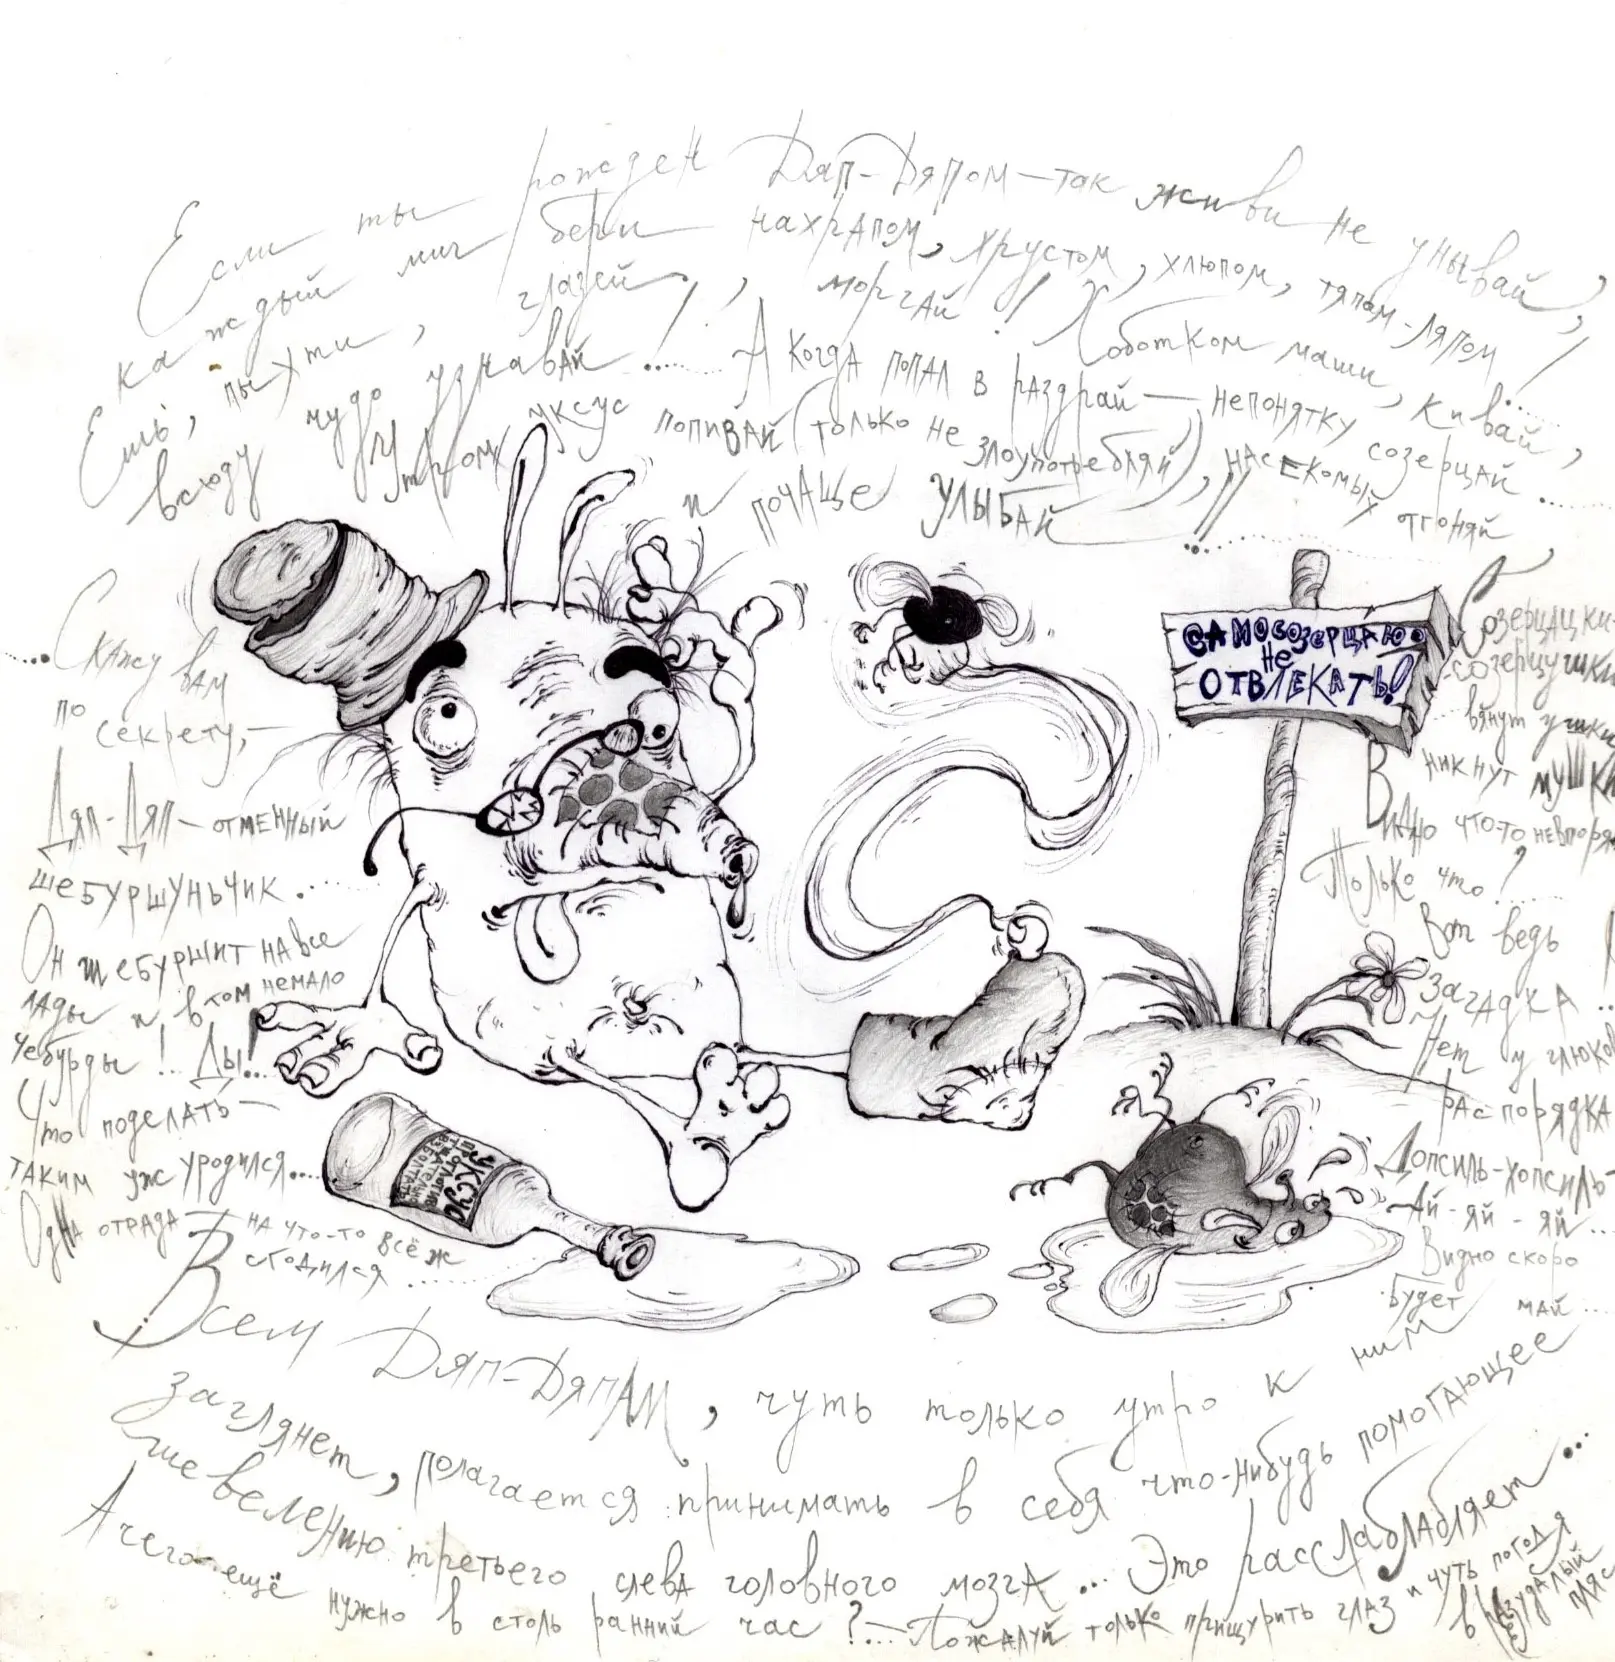 Если ты рожден Дяп-Дяпом – так живи не унывай,
каждый миг бери нахрапом, хрустом, хлюпом, тяпом-ляпом!
Ешь, пыхти, глазей, моргай! Хоботком маши, кивай,
всюду чудо узнавай!...... А когда попал в раздрай – непонятку созерцай......
Утром уксус попивай (только не злоупотребляй), насекомых отгоняй
и почаще улыбай
...Скажу вам
по секрету, –
Дяп-Дяп – отменный
шебуршуньчик......
Он шебуршит на все
лады и в том немало
чебурды!.. Ды!...
Что поделать –
таким уж уродился....
Одна отрада – на что-то всё ж
сгодился ......
САМОСОЗЕРЦАЮ
НЕ
ОТВЛЕКАТЬ!
УКСУС
Созерцацки-
-созерцушки
вянут ушки
никнут мушки
Видно что-то невпоря
Только что?......
Вот ведь
загадка...
Нет у глюков
распорядка
Допсиль-хопсиль-
Ай-яй-яй...
Видно скоро
будет май...
Всем Дяп-Дяпам, чуть только утро к ним
заглянет, полагается принимать в себя что-нибудь помогающее
шевелению третьего слева головного мозга... Это расслаблабляет...
А чего ещё нужно в столь ранний час?... – Пожалуй только прищурить глаз и чуть погодя
в
пляс